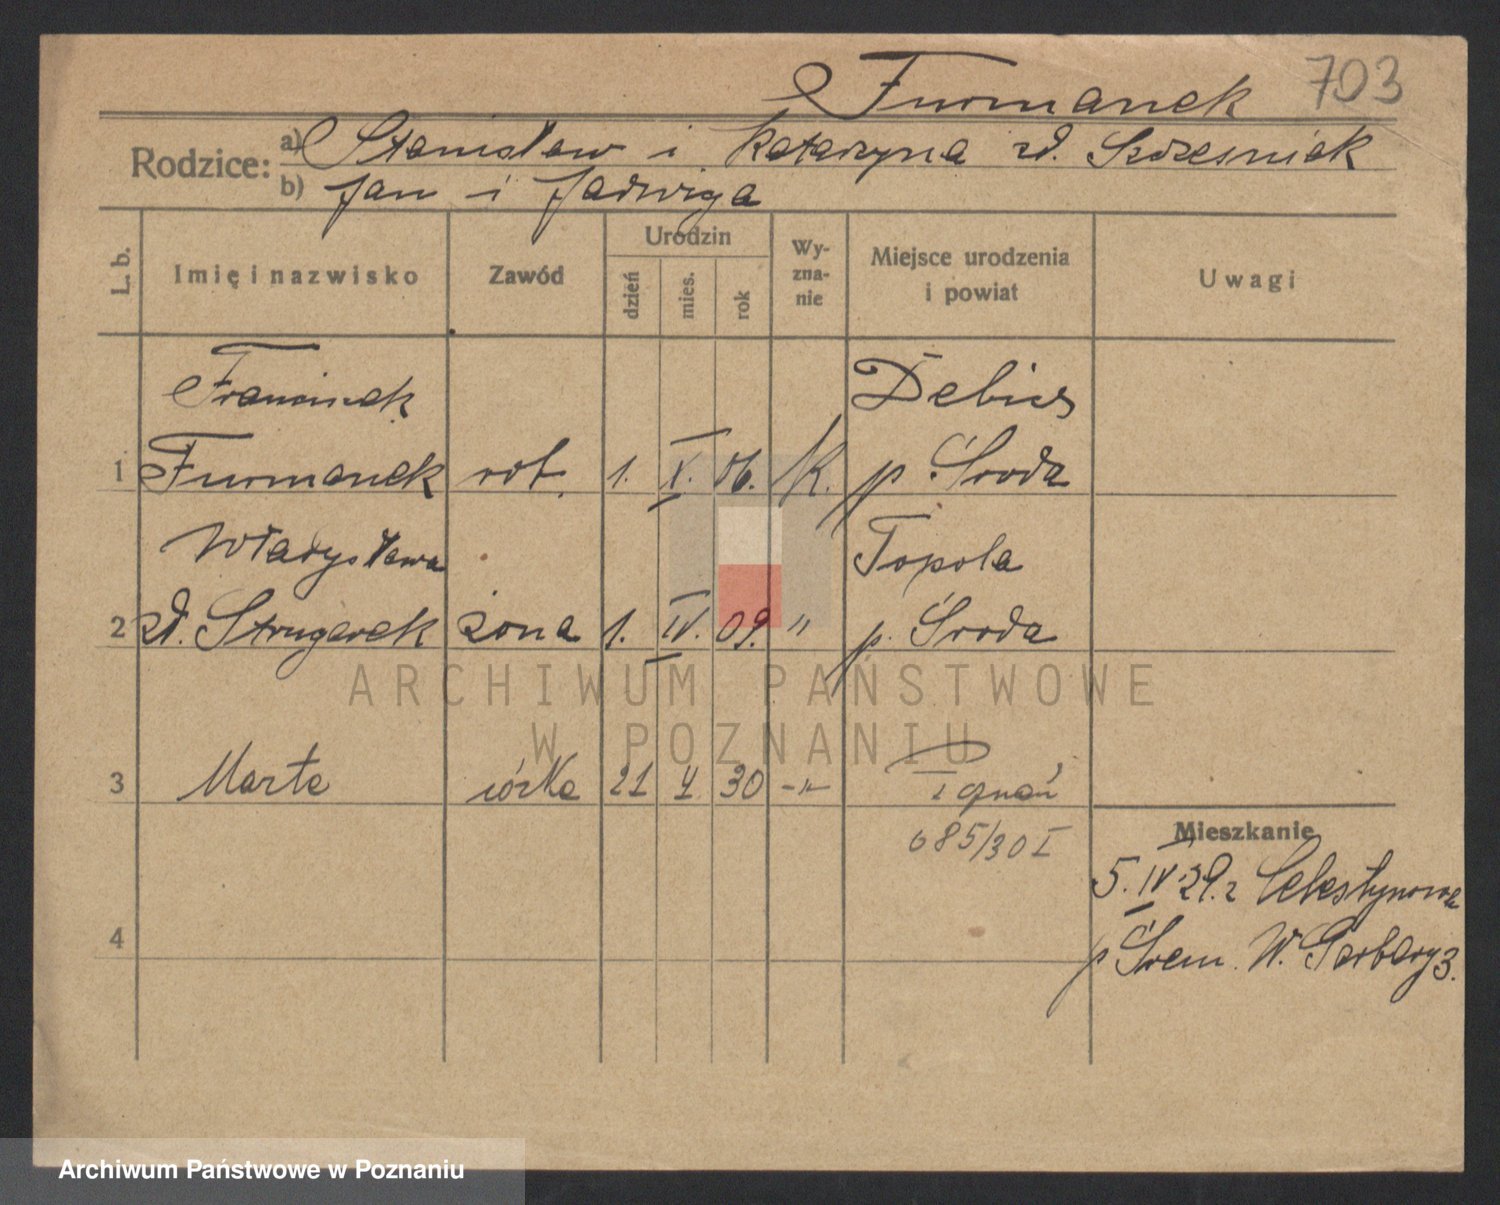 Furmanek 703
Rodzice: a) Stanisław i Katarzyna zd. Szczesniak
b) Jan i Jadwiga
L. b.
Imię i nazwisko
Zawód
Urodzin
dzień
mies.
rok
Wy-
zna-
nie
Miejsce urodzenia
i powiat
Uwagi
Franciszek Dębicz
1 Furmanek rob. 1. X. 06. K. p. Środa
Władysława Topola
2 zd. Strugarek żona 1. IV. 09. " p. Środa
3 Marta córka 21 V 30 -"- Poznań
685/30 I
Mieszkanie
5. IV 29. r Celestynowo
4
p Śrem. W. Garbary 3.
ARCHIWUM PAŃSTWOWE
W POZNANIU
Archiwum Państwowe w Poznaniu